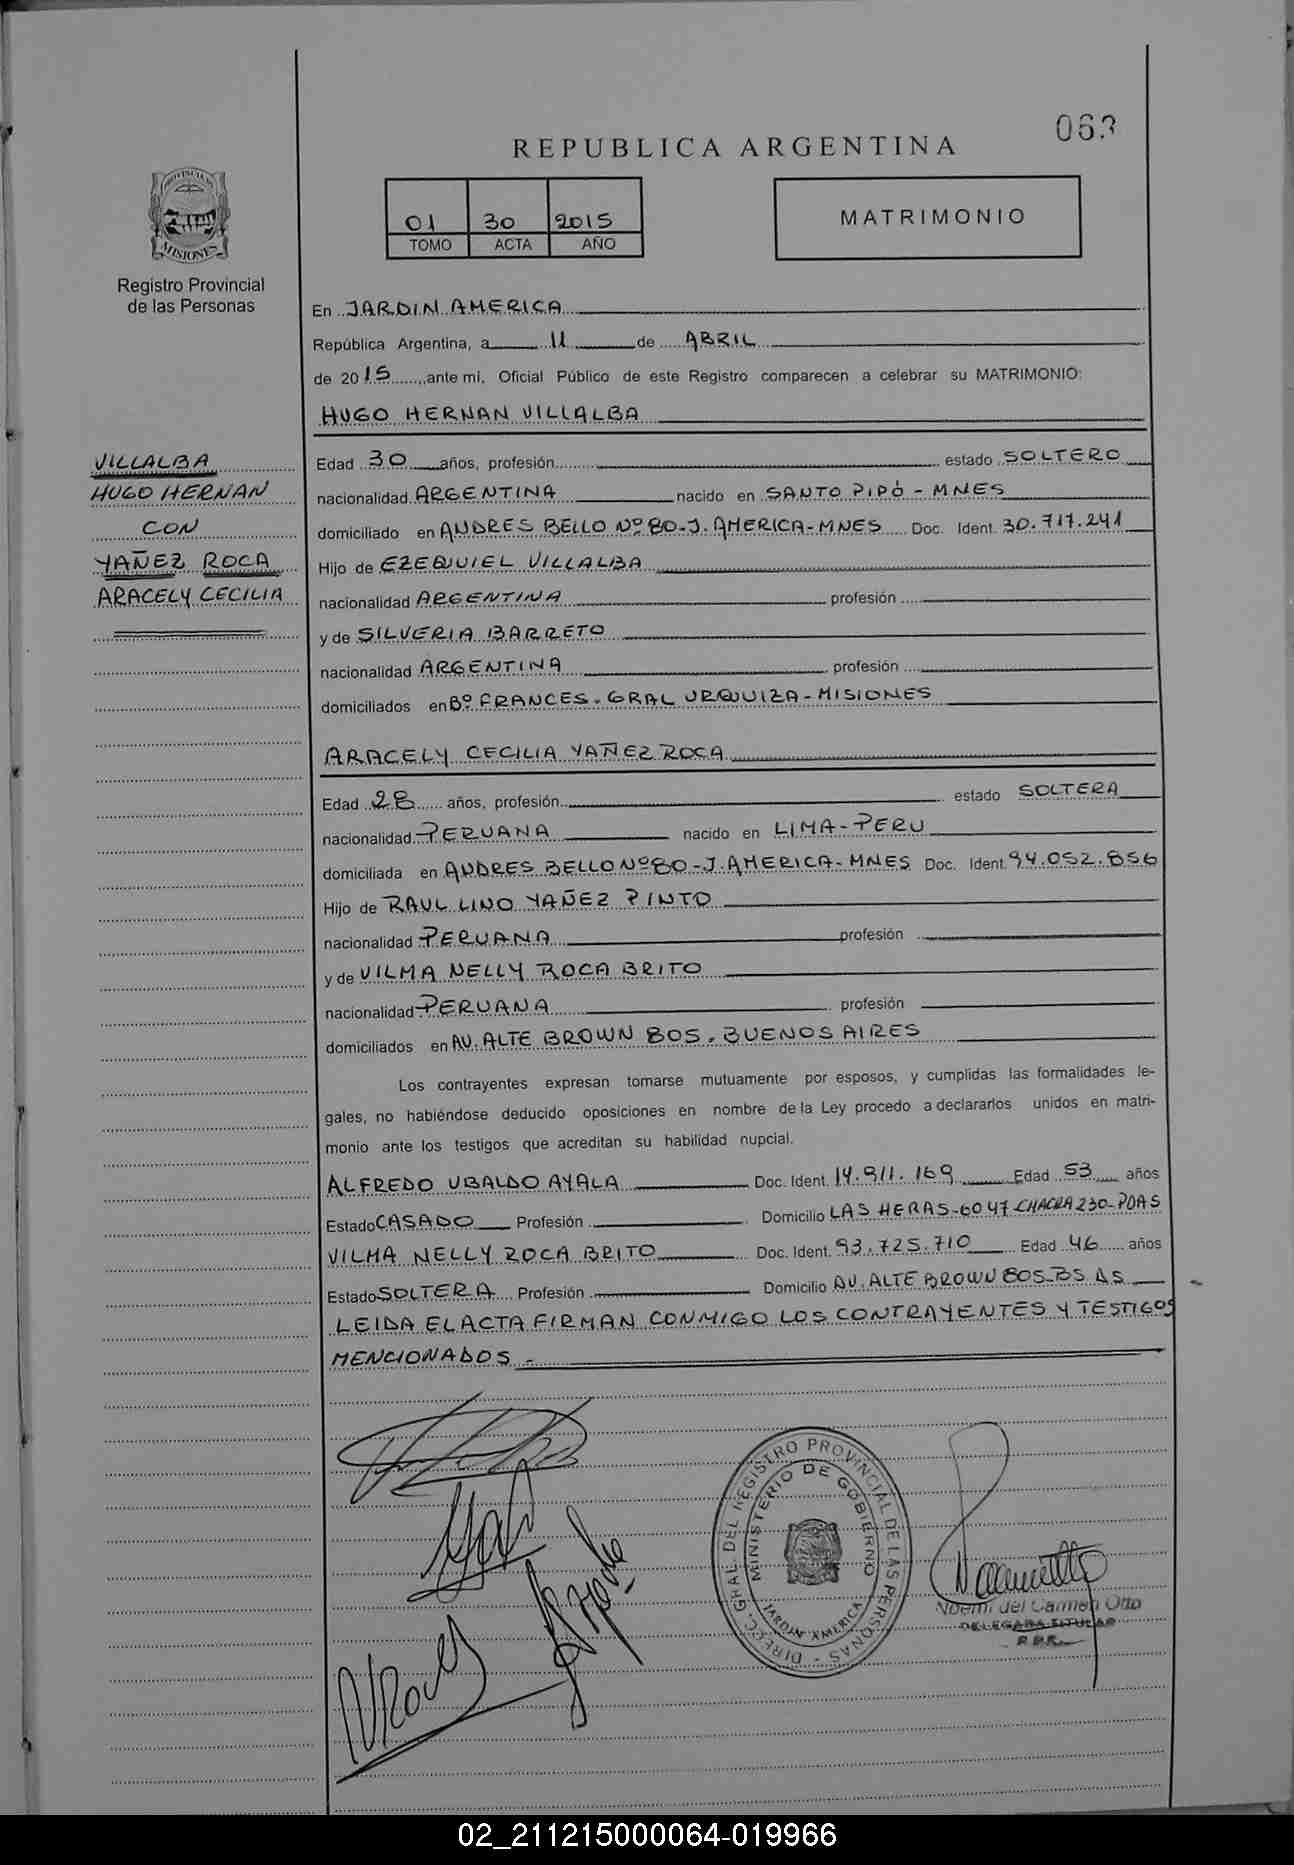 063
REPUBLICA ARGENTINA
01 30 2015
TOMO ACTA AÑO
MATRIMONIO
PROVINCIA DE
MISIONES
Registro Provincial
de las Personas
En JARDIN AMERICA
República Argentina, a 11 de ABRIL
de 2015, ante mi, Oficial Público de este Registro comparecen a celebrar su MATRIMONIO:
HUGO HERNAN VILLALBA
VILLALBA
HUGO HERNAN
CON
YAÑEZ ROCA
ARACELY CECILIA
Edad 30 años, profesión estado SOLTERO
nacionalidad ARGENTINA nacido en SANTO PIPÓ - MNES
domiciliado en ANDRES BELLO Nº 80-J. AMERICA-MNES Doc. Ident. 30.717.241
Hijo de EZEQUIEL VILLALBA
nacionalidad ARGENTINA profesión
y de SILVERIA BARRETO
nacionalidad ARGENTINA profesión
domiciliados en Bº FRANCES - GRAL URQUIZA - MISIONES
ARACELY CECILIA YAÑEZ ROCA
Edad 28 años, profesión estado SOLTERA
nacionalidad PERUANA nacido en LIMA-PERU
domiciliada en ANDRES BELLO Nº 80-J. AMERICA-MNES Doc. Ident. 94.052.856
Hijo de RAUL LINO YAÑEZ PINTO
nacionalidad PERUANA profesión
y de VILMA NELLY ROCA BRITO
nacionalidad PERUANA profesión
domiciliados en AV. ALTE BROWN 805 - BUENOS AIRES
Los contrayentes expresan tomarse mutuamente por esposos, y cumplidas las formalidades le-
gales, no habiéndose deducido oposiciones en nombre de la Ley procedo a declararlos unidos en matri-
monio ante los testigos que acreditan su habilidad nupcial.
ALFREDO UBALDO AYALA Doc. Ident. 14.911.169 Edad 53 años
Estado CASADO Profesión Domicilio LAS HERAS-6047 CHACRA 230-PDAS
VILMA NELLY ROCA BRITO Doc. Ident. 93.725.710 Edad 46 años
Estado SOLTERA Profesión Domicilio AV. ALTE BROWN 805-BS AS
LEIDA EL ACTA FIRMAN CONMIGO LOS CONTRAYENTES Y TESTIGOS
MENCIONADOS.-
DIRECC. GRAL. DEL REGISTRO PROVINCIAL DE LAS PERSONAS -
MINISTERIO DE GOBIERNO
JARDIN AMERICA
Noemi del Carmen Otto
DELEGADA TITULAR
R.P.P.
02_211215000064-019966